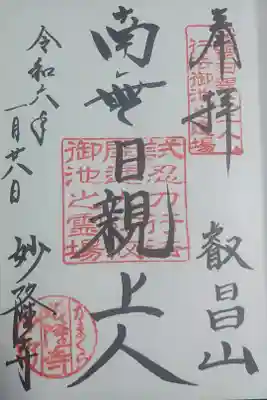 奉拝
叡昌山
南無日親上人
令和六年
一月廿八日
妙隆寺
御池之霊場
かまくら
妙隆寺